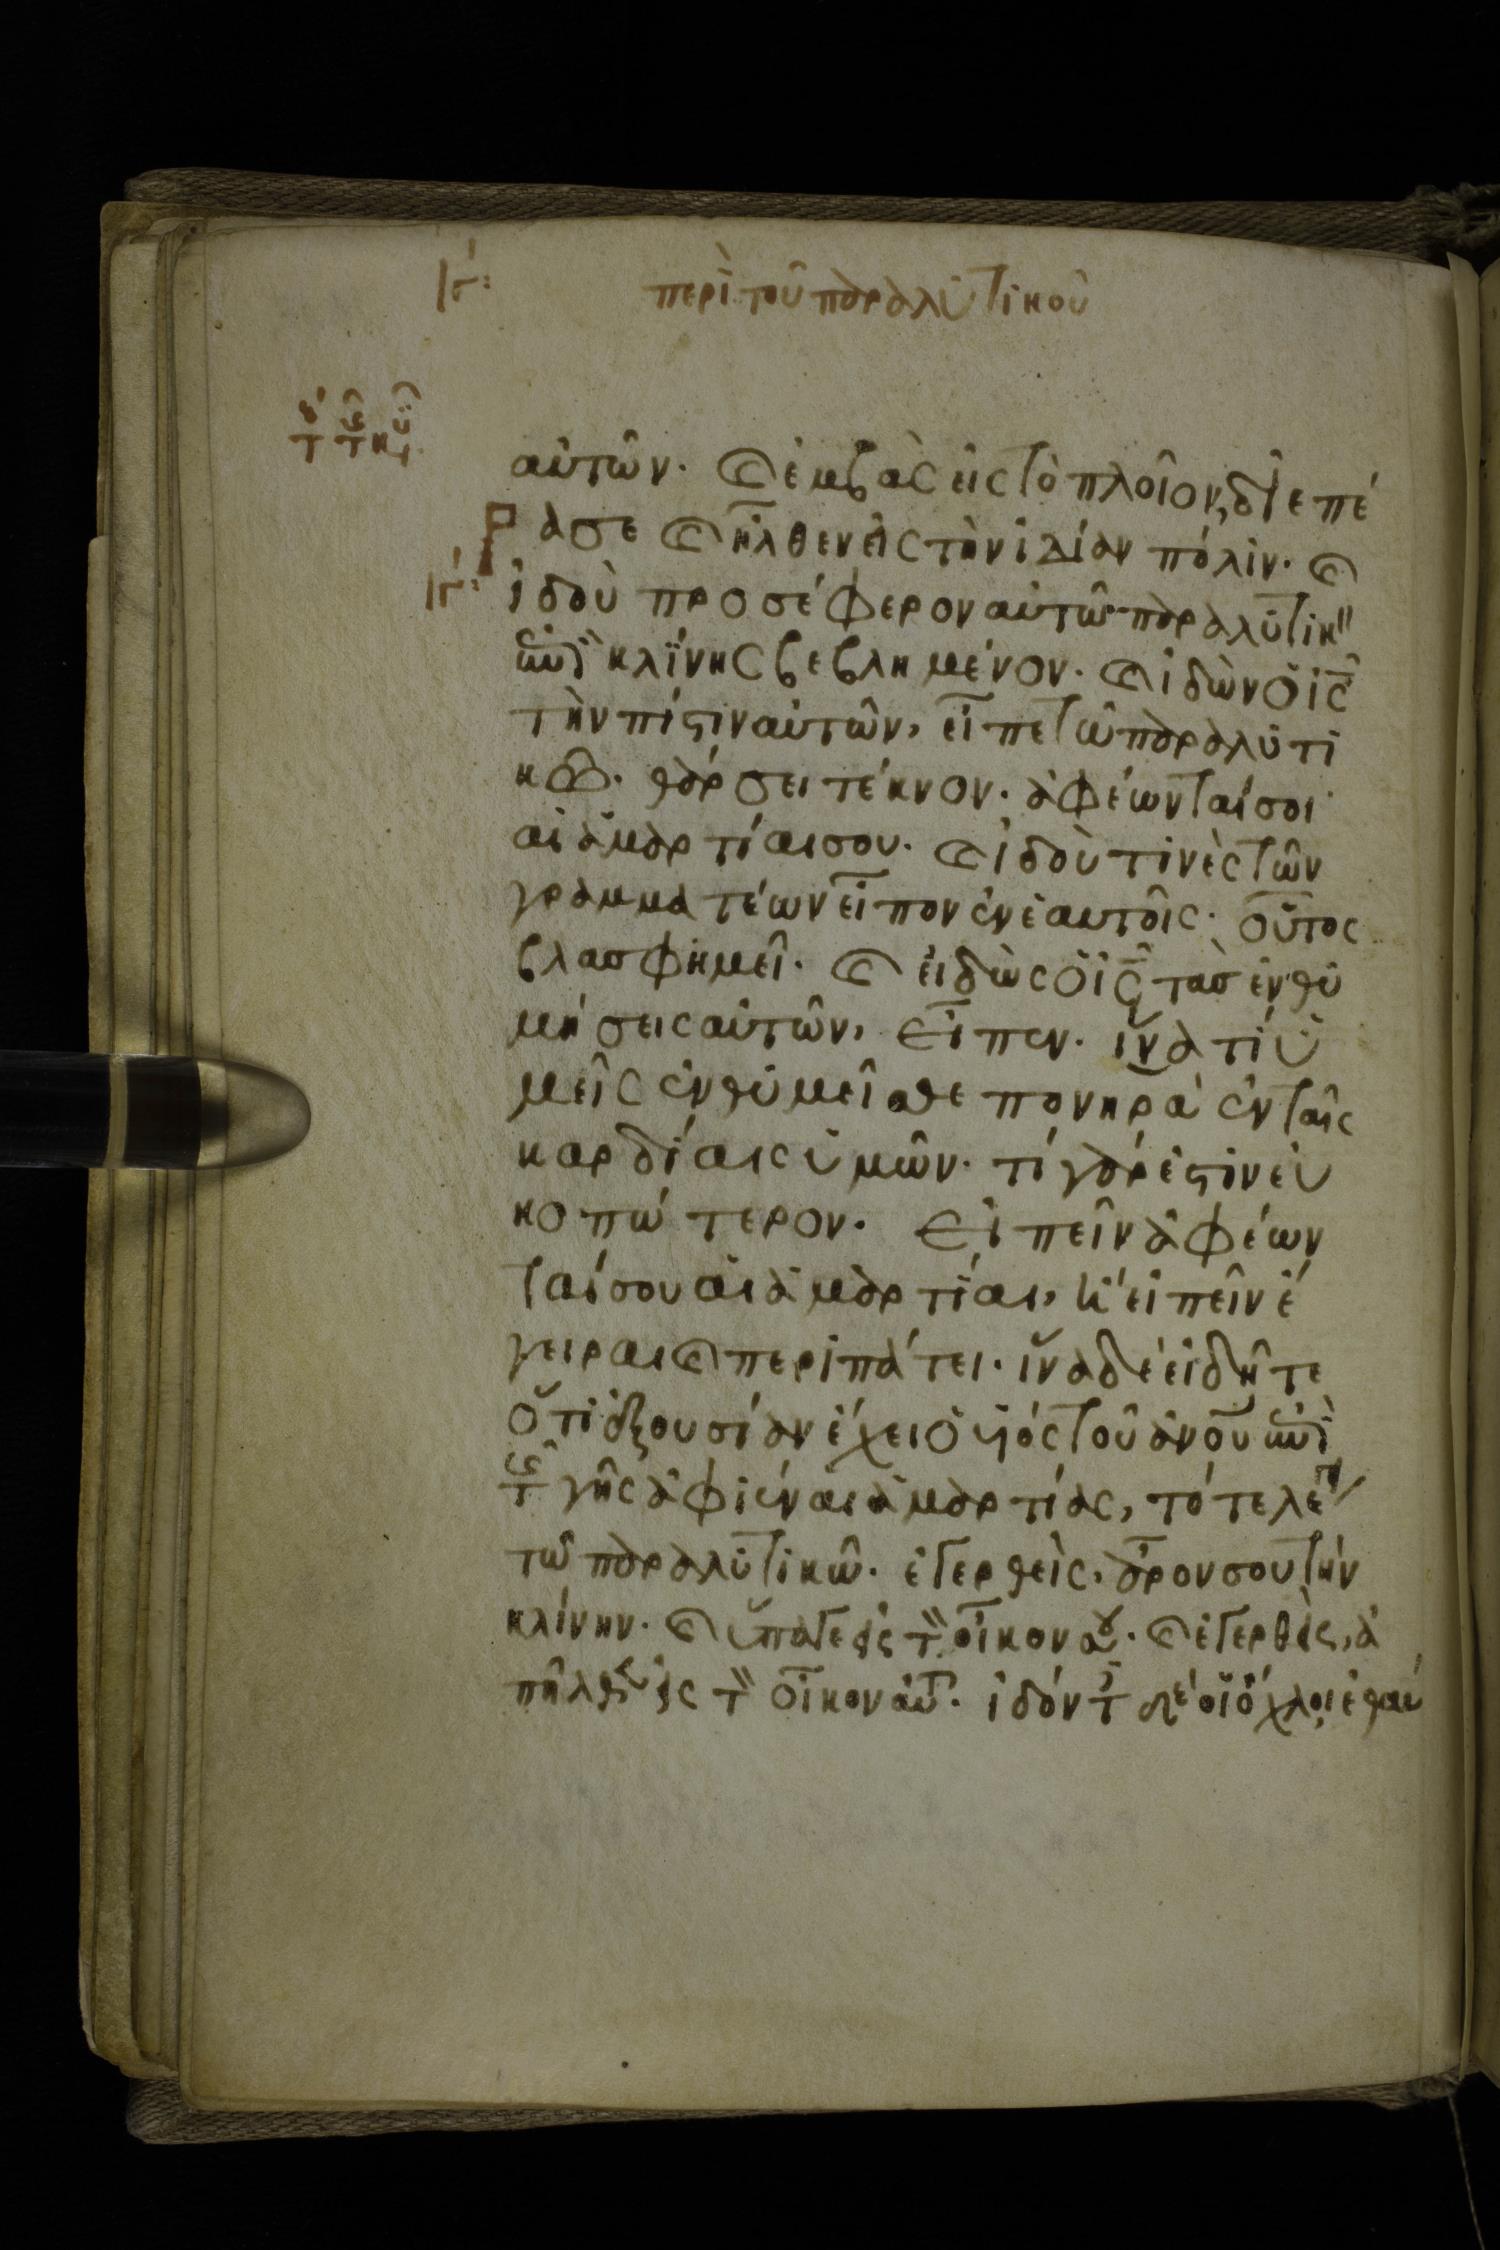 ιγ΄: περὶ τοῦ παραλυτικοῦ
αὐτῶν. καὶ ἐμβὰς εἰς τὸ πλοῖον, διεπέ
ρασε καὶ ἦλθεν εἰς τὴν ἰδίαν πόλιν. καὶ
ιγ΄: ἰδοὺ προσέφερον αὐτῷ παραλυτικ
ἐπὶ κλίνης βεβλημένον. καὶ ἰδὼν ὁ ις̄
τὴν πίστιν αὐτῶν, εἶπε τῶ παραλυτι
κῶ. θάρσει τέκνον. ἀφέωνταί σοι
αἱ ἁμαρτίαι σου. καὶ ἰδοὺ τινὲς τῶν
γραμματέων εἶπον ἐν ἑαυτοῖς. οὗτος
βλασφημεῖ. καὶ εἰδὼς ὁ ις̄ τὰς ἐνθυ
μήσεις αὐτῶν, εἶπεν. ἵνα τί ὑ
μεῖς ἐνθυμεῖσθε πονηρὰ ἐν ταῖς
καρδίαις ὑμῶν. τί γάρ ἐστιν εὐ
κοπώτερον. εἰπεῖν ἀφέων
ταί σου αἱ ἁμαρτίαι, ἢ εἰπεῖν ἔ
γειραι καὶ περιπάτει. ἵνα δὲ εἰδῆτε
ὅτι ἐξουσίαν ἔχει ὁ υἱὸς τοῦ ἀνου ἐπὶ
τῆς γῆς ἀφιέναι ἁμαρτίας, τότε λέγει
τῶ παραλυτικῶ. ἐγερθεὶς, ἆρόν σου τὴν
κλίνην. καὶ ὕπαγε εἰς τὸν οἶκόν σου. καὶ ἐγερθεὶς, ἀ
πῆλθεν εἰς τὸν οἶκον αὐτοῦ. ἰδόντες δὲ οἱ ὄχλοι ἐθαύ